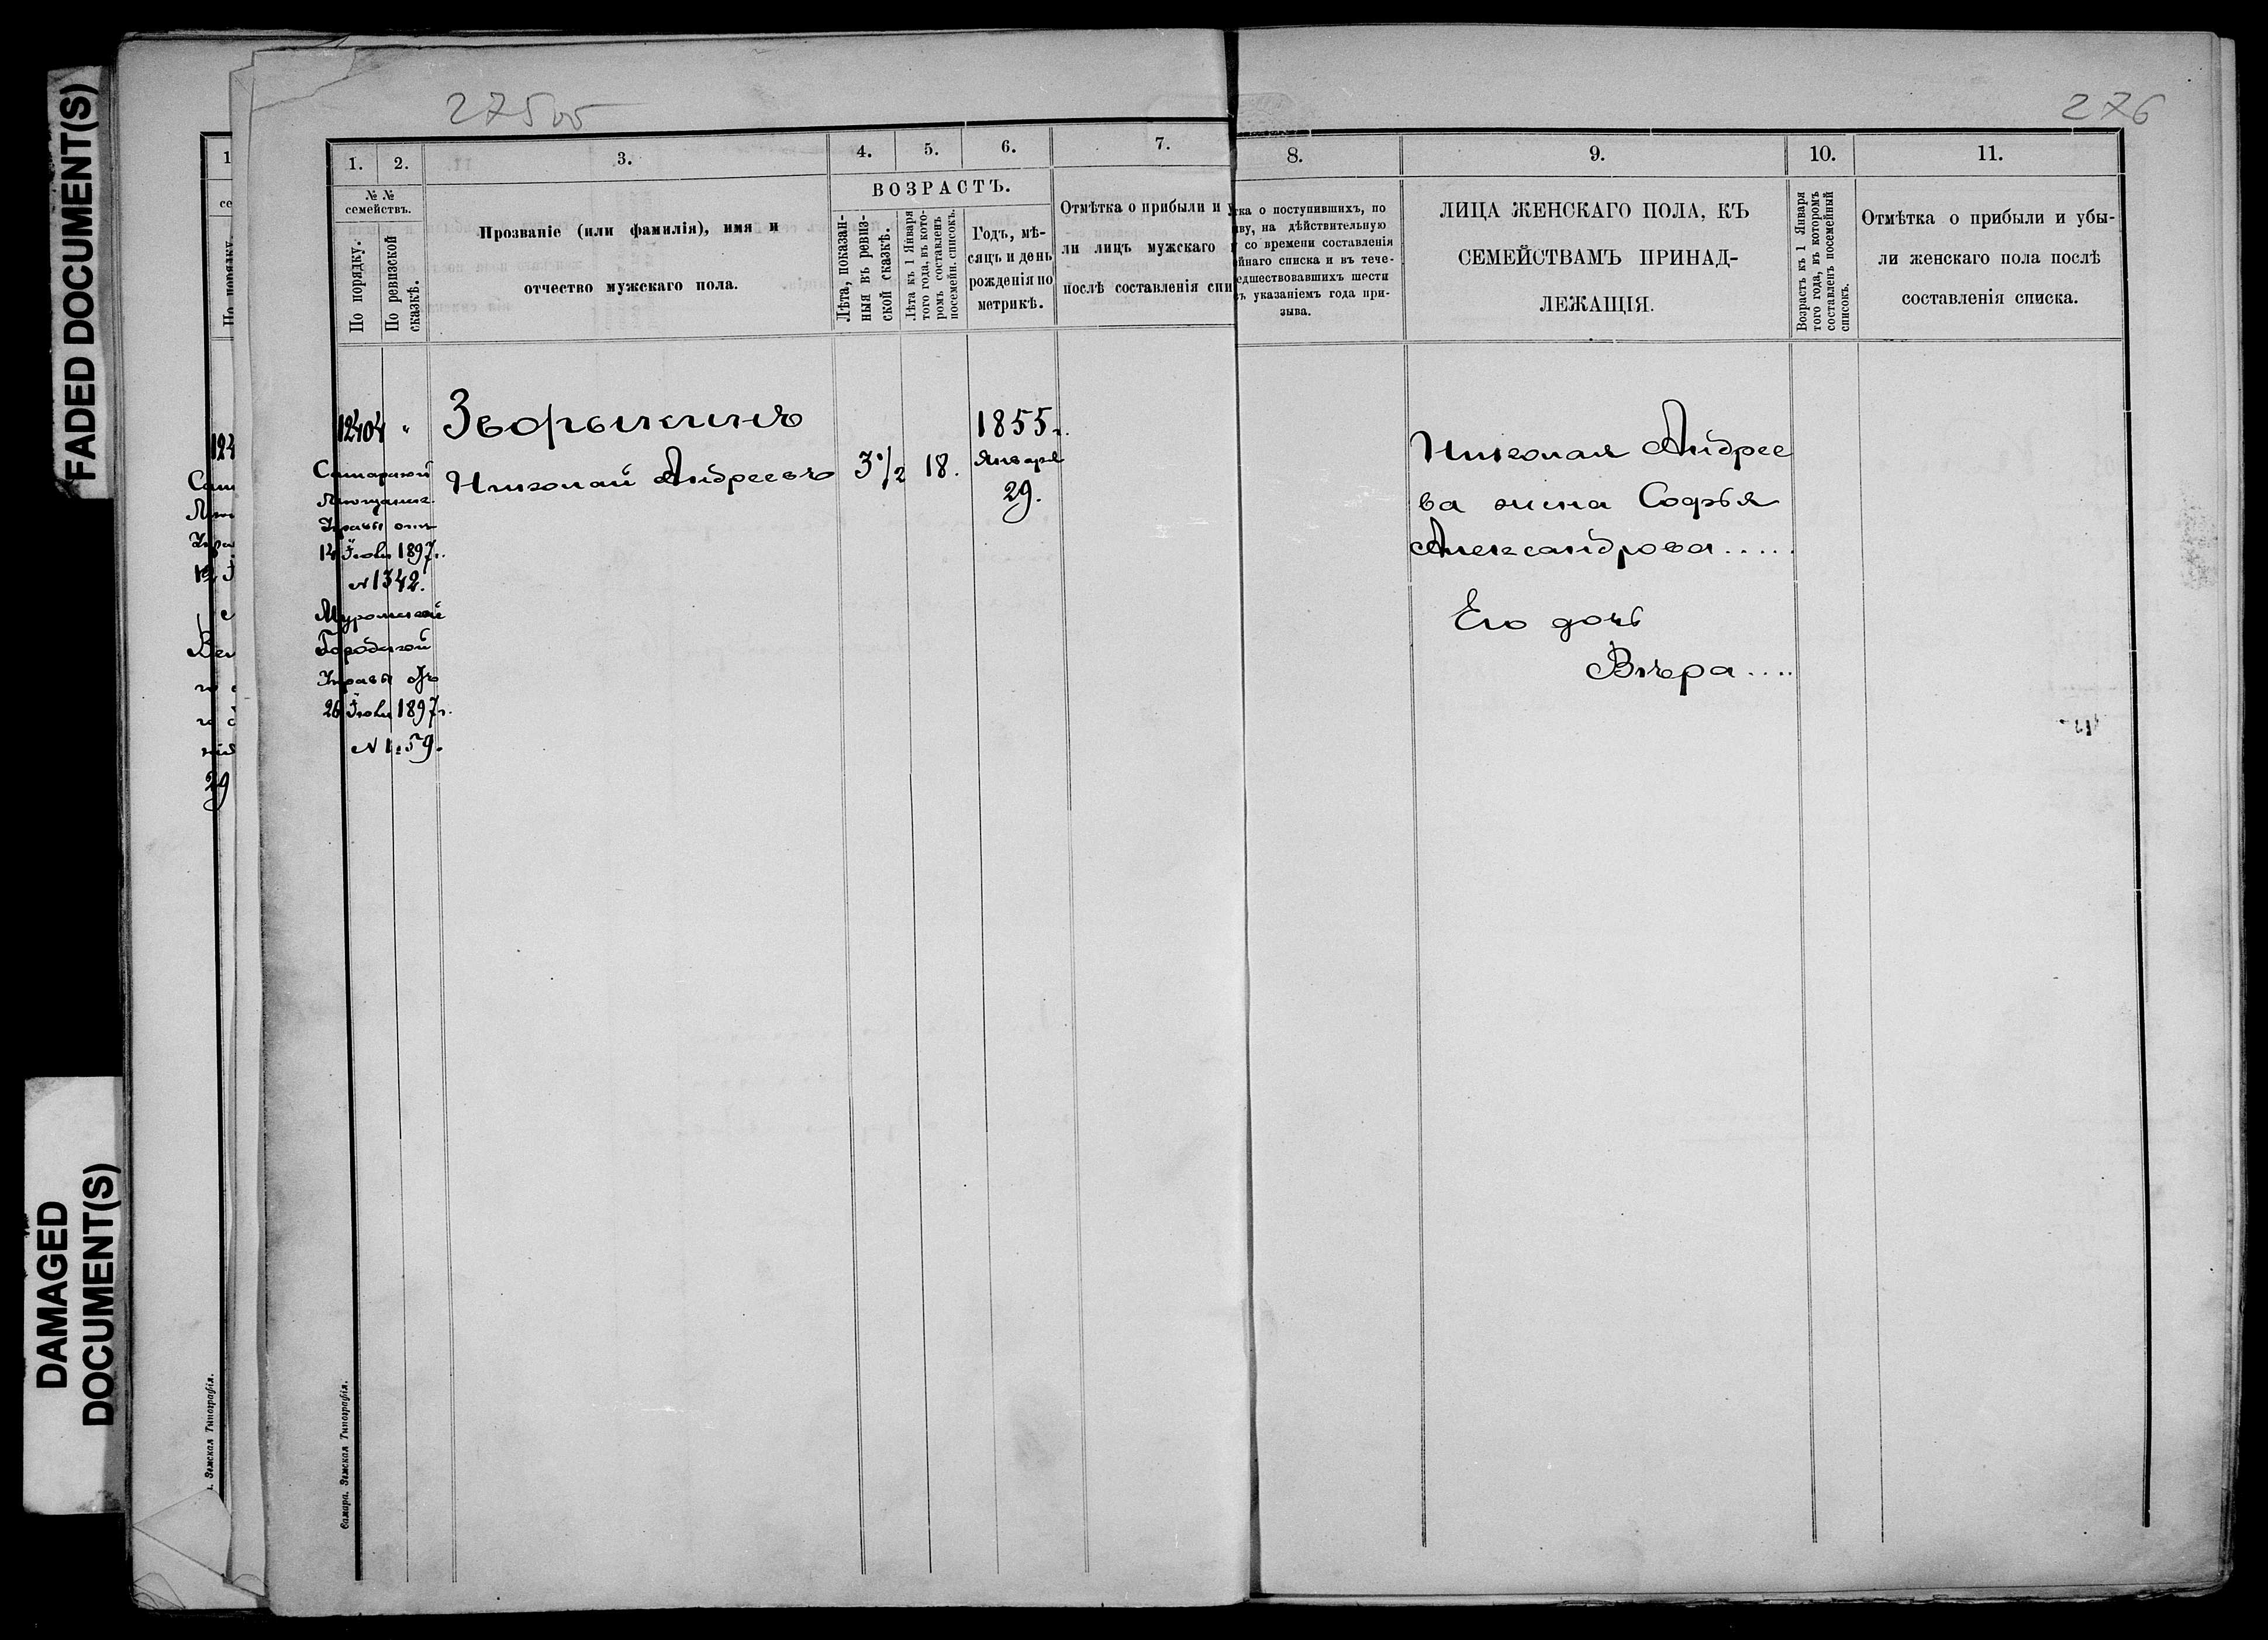 FADED DOCUMENT(S)
DAMAGED
DOCUMENT(S)
275об
1.
2.
3.
4.
5.
6.
7.
№ №
семействъ.
По порядку.
По ревизской
сказкѣ.
Прозваніе (или фамилія), имя и
отчество мужскаго пола.
ВОЗРАСТЪ.
Лѣта, показан-
ныя въ ревиз-
ской сказкѣ.
Лѣта къ 1 Января
того года, въ кото-
ромъ составленъ
посемейн. списокъ.
Годъ, мѣ-
сяцъ и день
рожденія по
метрикѣ.
Отмѣтка о прибыли и у
ли лицъ мужскаго
послѣ составленія спи
12404 "
Самарской
Мѣщанск.
Управы отъ
14 Іюля 1897 г.
№ 1342.
Муромской
Городской
Управы отъ
26 Іюля 1897 г.
Зворыкинъ
Николай Андреевъ
3 1/2
18.
1855 г.
Января
29.
Самара. Земская Типографія.
. Земская Типографія.
276
8.
9.
10.
11.
тка о поступившихъ, по
иву, на дѣйствительную
со времени составленія
ейнаго списка и въ тече-
едшествовавшихъ шести
ъ указаніемъ года при-
зыва.
ЛИЦА ЖЕНСКАГО ПОЛА, КЪ
СЕМЕЙСТВАМЪ ПРИНАД-
ЛЕЖАЩІЯ.
Возрастъ къ 1 Января
того года, въ которомъ
составленъ посемейный
списокъ.
Отмѣтка о прибыли и убы-
ли женскаго пола послѣ
составленія списка.
Николая Андрее
ва жена Софья
Александрова.....
Его дочь
Вѣра....